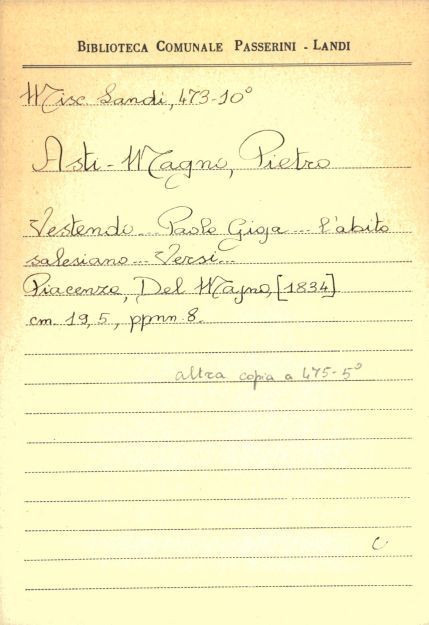 BIBLIOTECA COMUNALE PASSERINI - LANDI
Misc Landi, 473-10°
Asti-Magno, Pietro
Vestendo... Paola Gioja ... l'abito
salesiano... Versi...
Piacenza, Del Majno, [1834].
cm. 19,5, ppnn 8.
altra copia a 475-5°
C